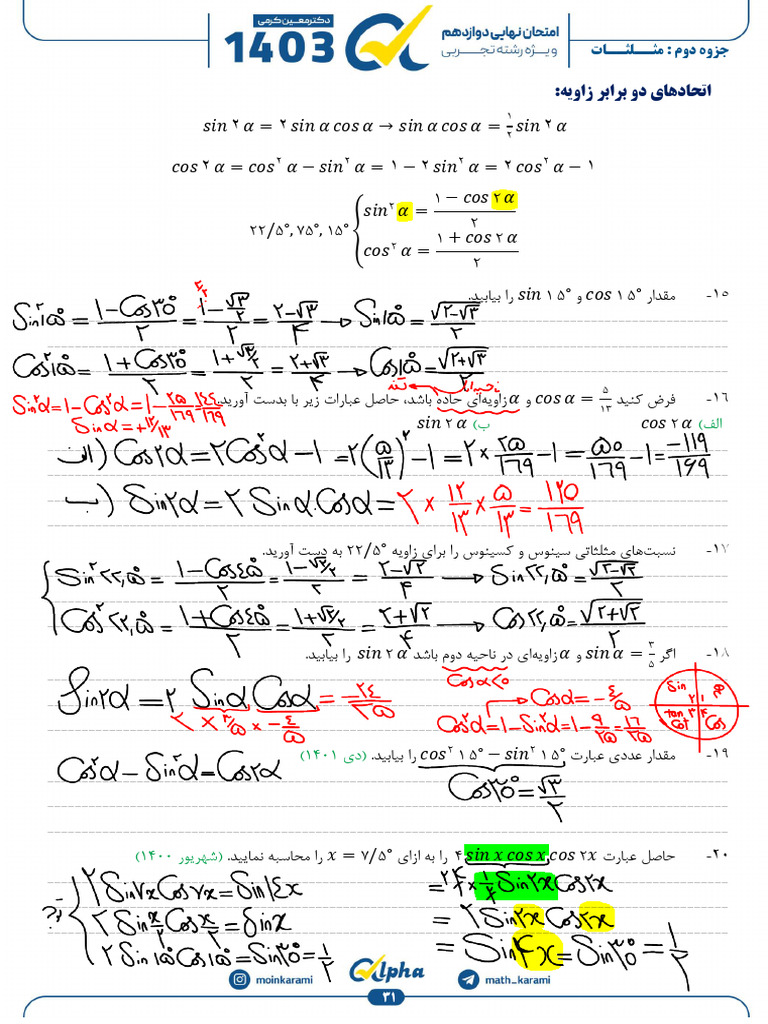 جزوه دوم : مثلثات
امتحان نهایی دوازدهم
ویژه رشته تجربی
دکتر معین کرمی
1403
اتحادهای دو برابر زاویه:
sin ۲α = ۲ sin α cos α → sin α cos α = ۱/۲ sin ۲α
cos ۲α = cos² α − sin² α = ۱ − ۲ sin² α = ۲ cos² α − ۱
۲۲/۵°, ۷۵°, ۱۵° { sin² α = (۱ − cos ۲α)/۲
cos² α = (۱ + cos ۲α)/۲
۱۵- مقدار cos ۱۵° و sin ۱۵° را بیابید.
Sin²۱۵° = (۱ − Cos۳۰°)/۲ = (۱ − √۳/۲)/۲ = (۲−√۳)/۴ → Sin۱۵° = √(۲−√۳)/۲
Cos²۱۵° = (۱ + Cos۳۰°)/۲ = (۱ + √۳/۲)/۲ = (۲+√۳)/۴ → Cos۱۵° = √(۲+√۳)/۲
۱۶- فرض کنید cos α = ۵/۱۳ و α زاویه‌ای حاده باشد، حاصل عبارات زیر را بدست آورید.
ناحیه اول
Sin²α = ۱ − Cos²α = ۱ − ۲۵/۱۶۹ = ۱۴۴/۱۶۹
Sinα = +۱۲/۱۳
الف) cos ۲α
ب) sin ۲α
الف) Cos۲α = ۲Cos²α − ۱ = ۲(۵/۱۳)² − ۱ = ۲ × ۲۵/۱۶۹ − ۱ = ۵۰/۱۶۹ − ۱ = −۱۱۹/۱۶۹
ب) Sin۲α = ۲ Sinα.Cosα = ۲ × ۱۲/۱۳ × ۵/۱۳ = ۱۲۰/۱۶۹
۱۷- نسبت‌های مثلثاتی سینوس و کسینوس را برای زاویه ۲۲/۵° به دست آورید.
Sin²۲۲,۵° = (۱ − Cos۴۵°)/۲ = (۱ − √۲/۲)/۲ = (۲−√۲)/۴ → Sin۲۲,۵° = √(۲−√۲)/۲
Cos²۲۲,۵° = (۱ + Cos۴۵°)/۲ = (۱ + √۲/۲)/۲ = (۲+√۲)/۴ → Cos۲۲,۵° = √(۲+√۲)/۲
۱۸- اگر sin α = ۳/۵ و α زاویه‌ای در ناحیه دوم باشد sin ۲α را بیابید.
Cosα<۰
Sin۲α = ۲ Sinα Cosα = −۲۴/۲۵
۲ × ۳/۵ × −۴/۵
Cosα = −۴/۵
Cos²α = ۱ − Sin²α = ۱ − ۹/۲۵ = ۱۶/۲۵
Sin ۲ ۱
tan Cot ۳ ۴ Cos
۱۹- مقدار عددی عبارت cos² ۱۵° − sin² ۱۵° را بیابید. (دی ۱۴۰۱)
Cos²α − Sin²α = Cos۲α
Cos۳۰° = √۳/۲
۲۰- حاصل عبارت ۴ sin x cos x cos ۲x را به ازای x = ۷/۵° را محاسبه نمایید. (شهریور ۱۴۰۰)
= ۴ × ۱/۲ Sin۲x Cos۲x
= ۲ Sin۲x Cos۲x
= Sin۴x = Sin۳۰° = ۱/۲
۲ Sin۷x Cos۷x = Sin۱۴x
۲ Sin x/۲ Cos x/۲ = Sinx
۲ Sin۱۵° Cos۱۵° = Sin۳۰° = ۱/۲
moinkarami
Alpha
math_karami
۳۱